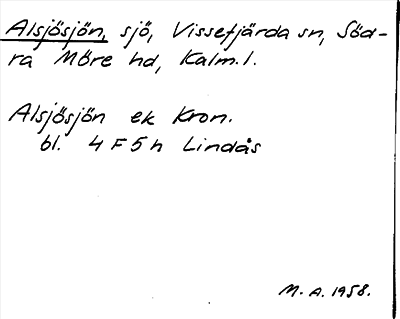 Alsjösjön, sjö, Vissefjärda sn, Söd-
ra Möre hd, Kalm.l.
Alsjösjön ek Kron.
bl. 4 F 5 h Lindås
M.A. 1958.